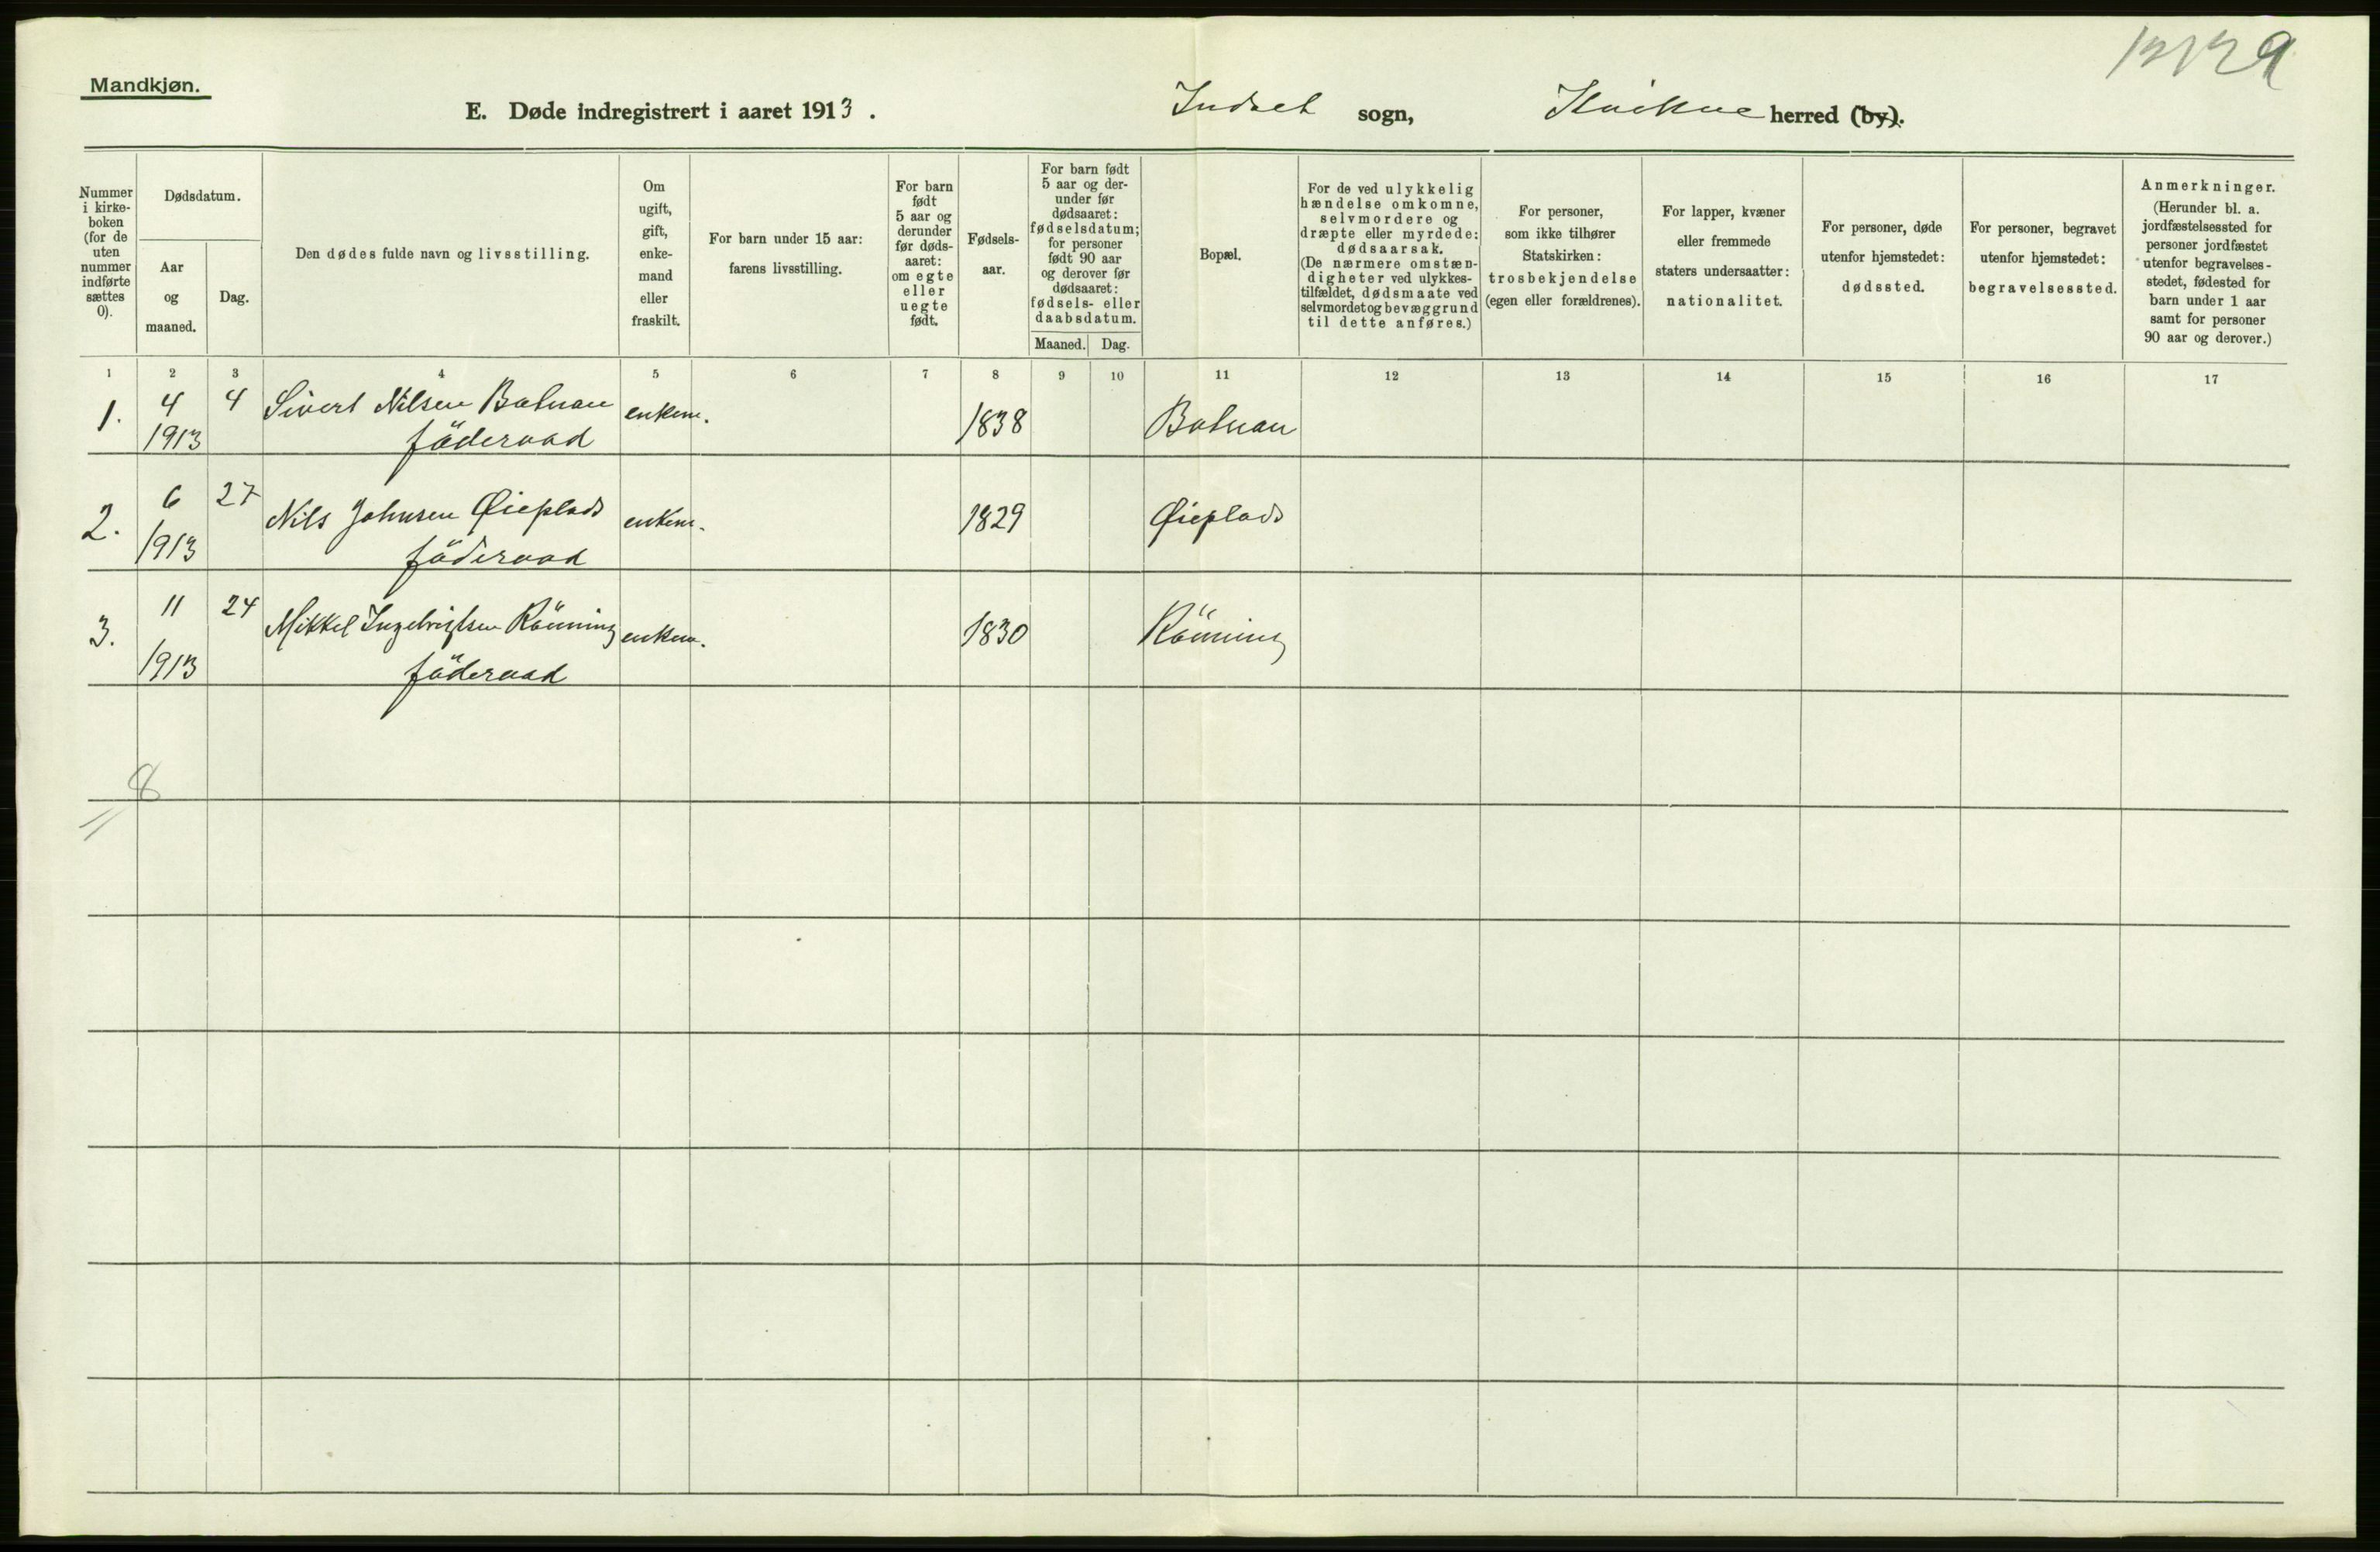 Mandkjøn.
E. Døde indregistrert i aaret 1913. Indset sogn, Kvikne herred (by).
Nummer i kirke-boken (for de uten nummer indførte sættes 0).
Dødsdatum.
Aar og maaned.
Dag.
Den dødes fulde navn og livsstilling.
Om ugift, gift, enke-mand eller fraskilt.
For barn under 15 aar: farens livsstilling.
For barn født 5 aar og derunder før døds-aaret: om egte eller uegte født.
Fødsels-aar.
For barn født 5 aar og der-under før dødsaaret: fødselsdatum; for personer født 90 aar og derover før dødsaaret: fødsels- eller daabsdatum.
Maaned. Dag.
Bopæl.
For de ved ulykkelig hændelse omkomne, selvmordere og dræpte eller myrdede: dødsaarsak. (De nærmere omstæn-digheter ved ulykkes-tilfældet, dødsmaate ved selvmordet og bevæggrund til dette anføres.)
For personer, som ikke tilhører Statskirken: trosbekjendelse (egen eller forældrenes).
For lapper, kvæner eller fremmede staters undersaatter: nationalitet.
For personer, døde utenfor hjemstedet: dødssted.
For personer, begravet utenfor hjemstedet: begravelsessted.
Anmerkninger. (Herunder bl. a. jordfæstelsessted for personer jordfæstet utenfor begravelses-stedet, fødested for barn under 1 aar samt for personer 90 aar og derover.)
1 2 3 4 5 6 7 8 9 10 11 12 13 14 15 16 17
1. 4 4 Sivert Nilsen Batnan enkem. 1838 Batnan
1913 föderaad
2. 6 27 Nils Johnsen Øieplads enkem. 1829 Øieplads
1913 föderaad
3. 11 24 Mikkel Ingebrigtsen Rönning enkem. 1830 Rönning
1913 föderaad
8